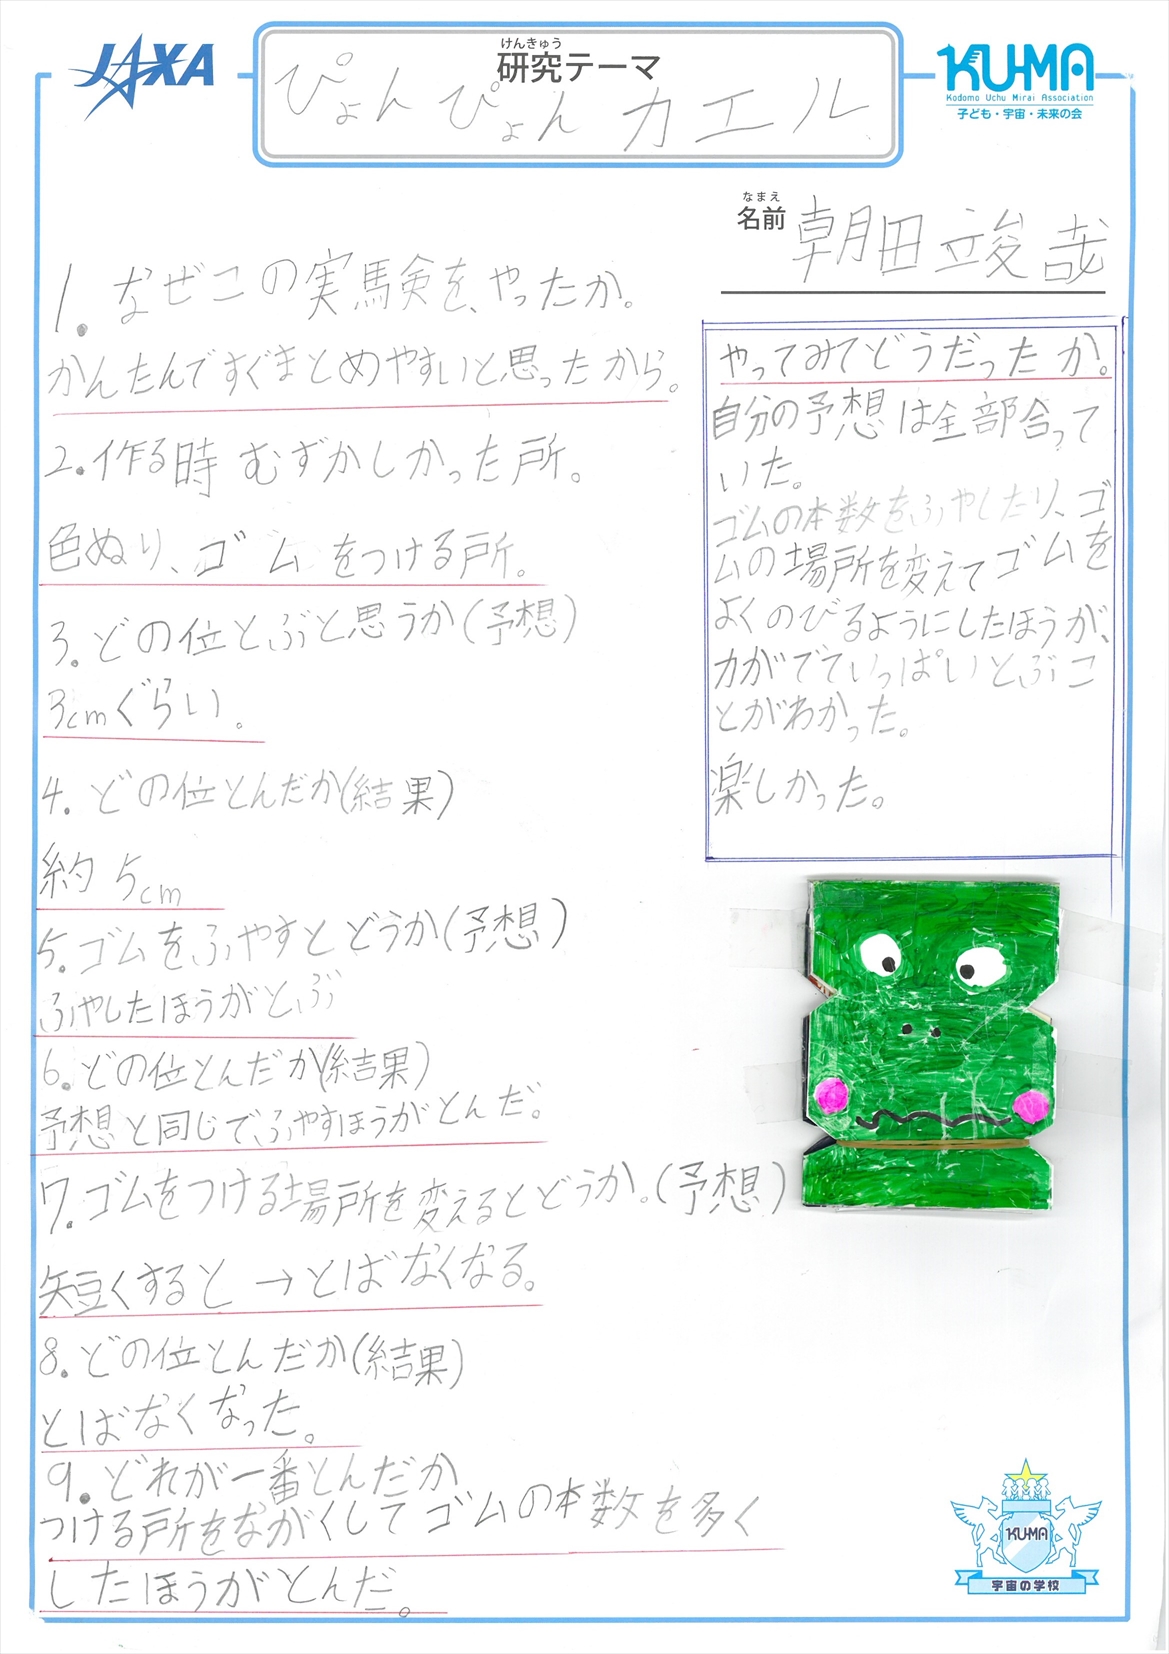 JAXA
けんきゅう
研究テーマ
ぴょんぴょんカエル
KU-MA
Kodomo Uchu Mirai Association
子ども・宇宙・未来の会
なまえ
名前 朝田竣哉
1. なぜこの実験を、やったか。
かんたんですぐまとめやすいと思ったから。
2. 作る時むずかしかった所。
色ぬり、ゴムをつける所。
3. どの位とぶと思うか(予想)
3cmぐらい。
4. どの位とんだか(結果)
約5cm
5. ゴムをふやすとどうか(予想)
ふやしたほうがとぶ
6. どの位とんだか(結果)
予想と同じでふやすほうがとんだ。
7. ゴムをつける場所を変えるとどうか。(予想)
短くすると→とばなくなる。
8. どの位とんだか(結果)
とばなくなった。
9. どれが一番とんだか
つける所をながくしてゴムの本数を多く
したほうがとんだ。
やってみてどうだったか。
自分の予想は全部合って
いた。
ゴムの本数をふやしたり、ゴ
ムの場所を変えてゴムを
よくのびるようにしたほうが、
力がでていっぱいとぶこ
とがわかった。
楽しかった。
KU-MA
宇宙の学校